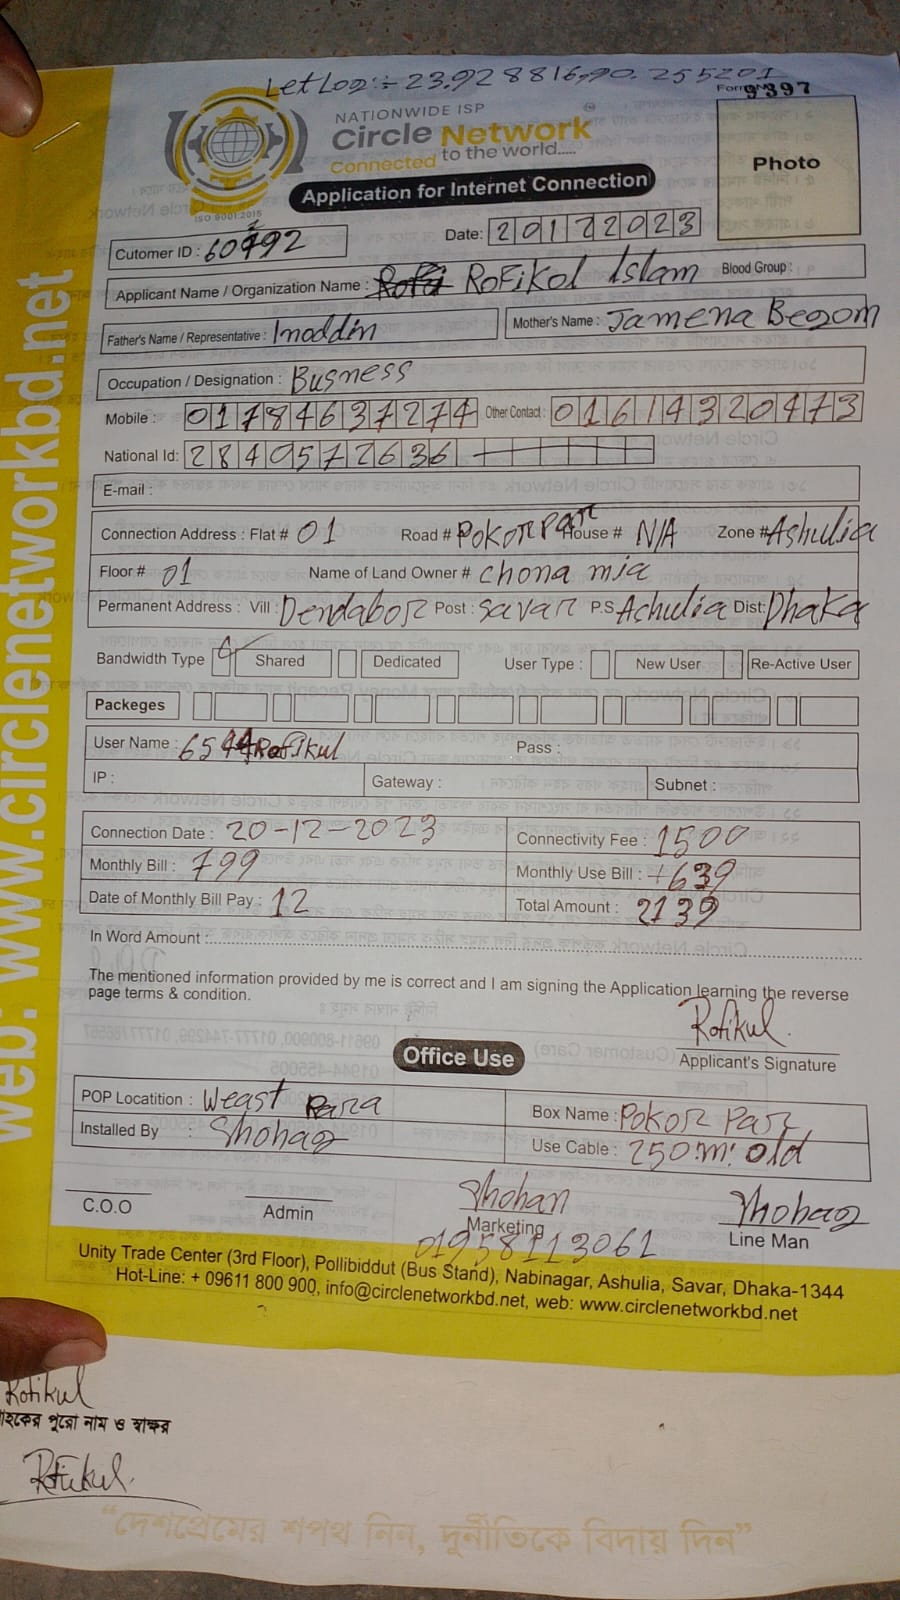 Let Loo:- 23.928816,90.255201
Form No 9397
NATIONWIDE ISP
Circle Network
Connected to the world.....
ISO 9001:2015
Application for Internet Connection
Photo
Cutomer ID :
Date: 20122023
Applicant Name / Organization Name : Rofikol Islam Blood Group :
Father's Name / Representative : Inoddin Mother's Name : Jamena Begom
Occupation / Designation : Busness
Mobile : 01784637274 Other Contact : 01614320473
National Id: 2849572636
E-mail :
Connection Address : Flat # 01 Road # Pokor Par House # N/A Zone # Ashulia
Floor # 01 Name of Land Owner # chona mia
Permanent Address : Vill : Dendabor Post : Savar P.S Ashulia Dist: Dhaka
Bandwidth Type Shared Dedicated User Type : New User Re-Active User
Packeges
User Name : Rofikul Pass :
IP : Gateway : Subnet :
Connection Date : 20-12-2023 Connectivity Fee : 1500
Monthly Bill : 799 Monthly Use Bill : +639
Date of Monthly Bill Pay : 12 Total Amount : 2139
In Word Amount :
The mentioned information provided by me is correct and I am signing the Application learning the reverse
page terms & condition.
Rofikul
Applicant's Signature
Office Use
POP Locatition : Weast Para Box Name : Pokor Par
Installed By : Shohag Use Cable : 250 m: old
C.O.O Admin Shohan Marketing Shohag Line Man
01958113061
Unity Trade Center (3rd Floor), Pollibiddut (Bus Stand), Nabinagar, Ashulia, Savar, Dhaka-1344
Hot-Line: + 09611 800 900, info@circlenetworkbd.net, web: www.circlenetworkbd.net
web: www.circlenetworkbd.net
Rofikul
পুরো নাম ও স্বাক্ষর
Rofikul
"দেশপ্রেমের শপথ নিন, দুর্নীতিকে বিদায় দিন"